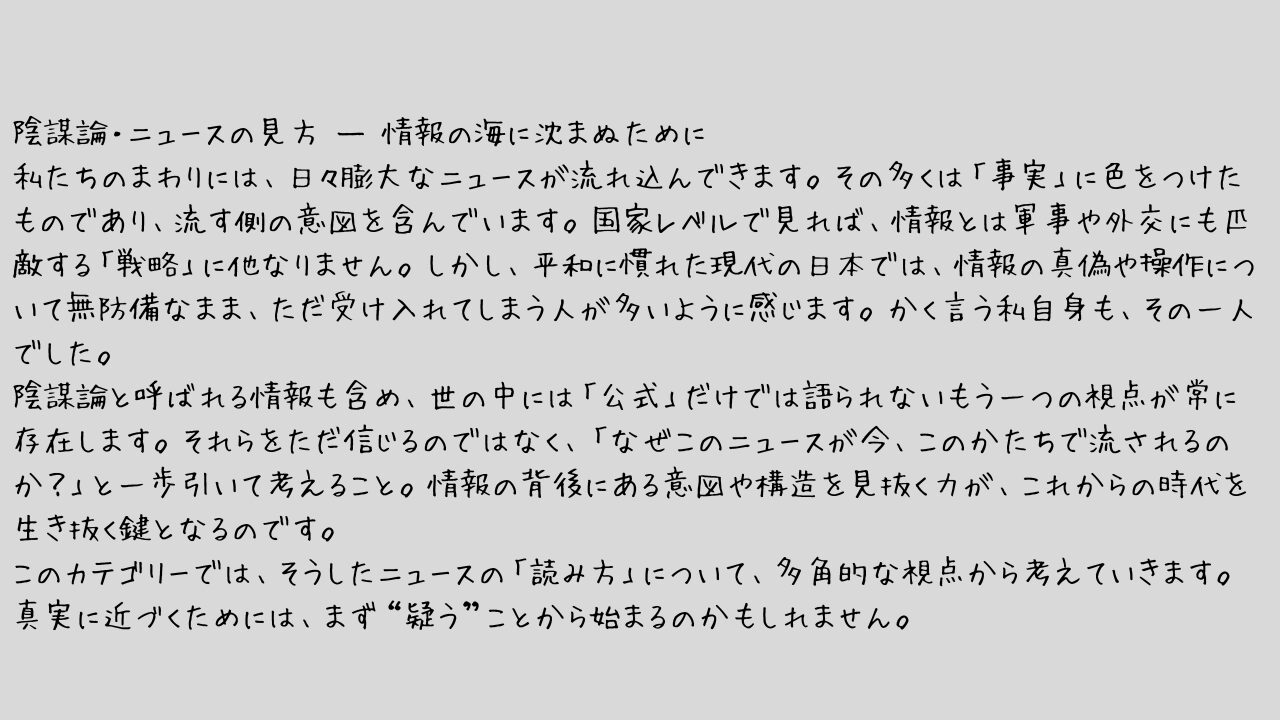 陰謀論・ニュースの見方 ― 情報の海に沈まぬために
私たちのまわりには、日々膨大なニュースが流れ込んできます。その多くは「事実」に色をつけた
ものであり、流す側の意図を含んでいます。国家レベルで見れば、情報とは軍事や外交にも匹
敵する「戦略」に他なりません。しかし、平和に慣れた現代の日本では、情報の真偽や操作につ
いて無防備なまま、ただ受け入れてしまう人が多いように感じます。かく言う私自身も、その一人
でした。
陰謀論と呼ばれる情報も含め、世の中には「公式」だけでは語られないもう一つの視点が常に
存在します。それらをただ信じるのではなく、「なぜこのニュースが今、このかたちで流されるの
か？」と一歩引いて考えること。情報の背後にある意図や構造を見抜く力が、これからの時代を
生き抜く鍵となるのです。
このカテゴリーでは、そうしたニュースの「読み方」について、多角的な視点から考えていきます。
真実に近づくためには、まず“疑う”ことから始まるのかもしれません。